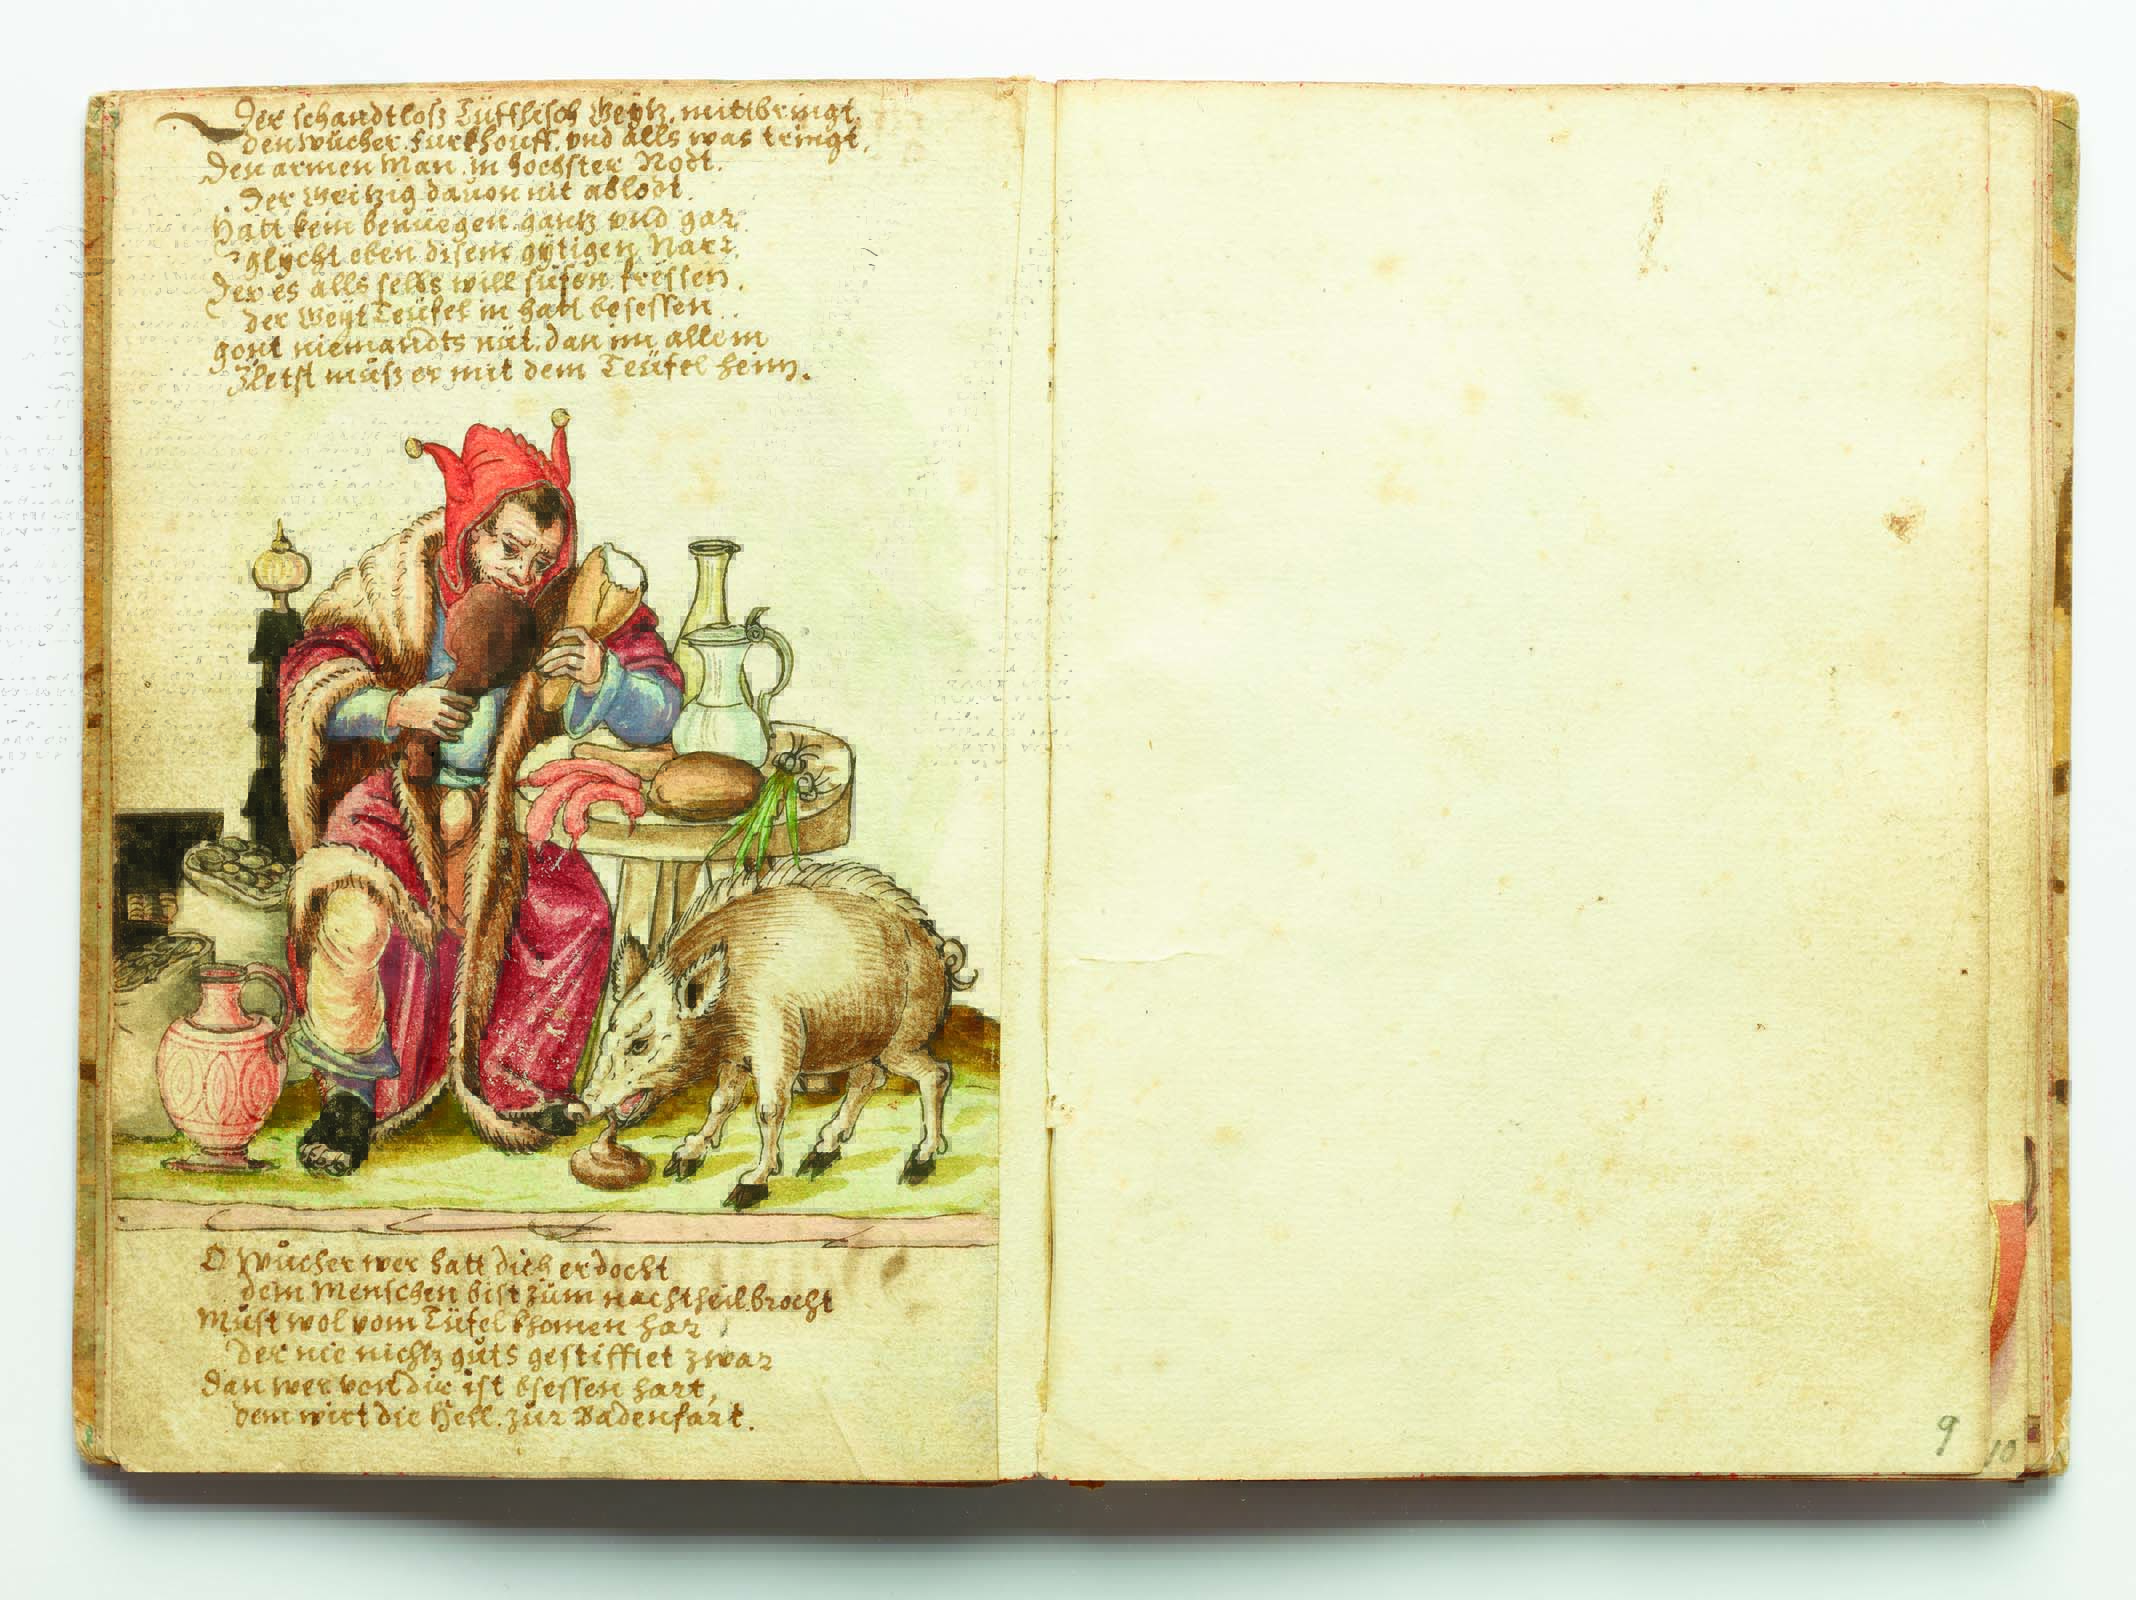 Der schandtlosz Tüfflisch Geytz, mittbringt,
den wůcher, Furkhouff, vnd alls was tringt,
Den armen Man, in höchster Nodt.
der Geitzig dauon nit ablodt.
Hatt kein benüegen, gantz vnd gar,
glycht eben disem gytigen Narr,
Der es alls selbs will sufen, fressen,
der Geyt Teüfel in hatt besessen.
gont niemandts nüt, dan im allem
Zletst můsz er mit dem Teüfel heim.
O Wůcher wer hatt dich erdocht
dem Menschen bist zům nachtheil brocht
Můst wol vom Tüfel khomen har
der nie nichtz gůts gestifftet zwar
Dan wer von dir ist bsessen hart,
dem wirt die Hell, zůr Badenfart.
9
10